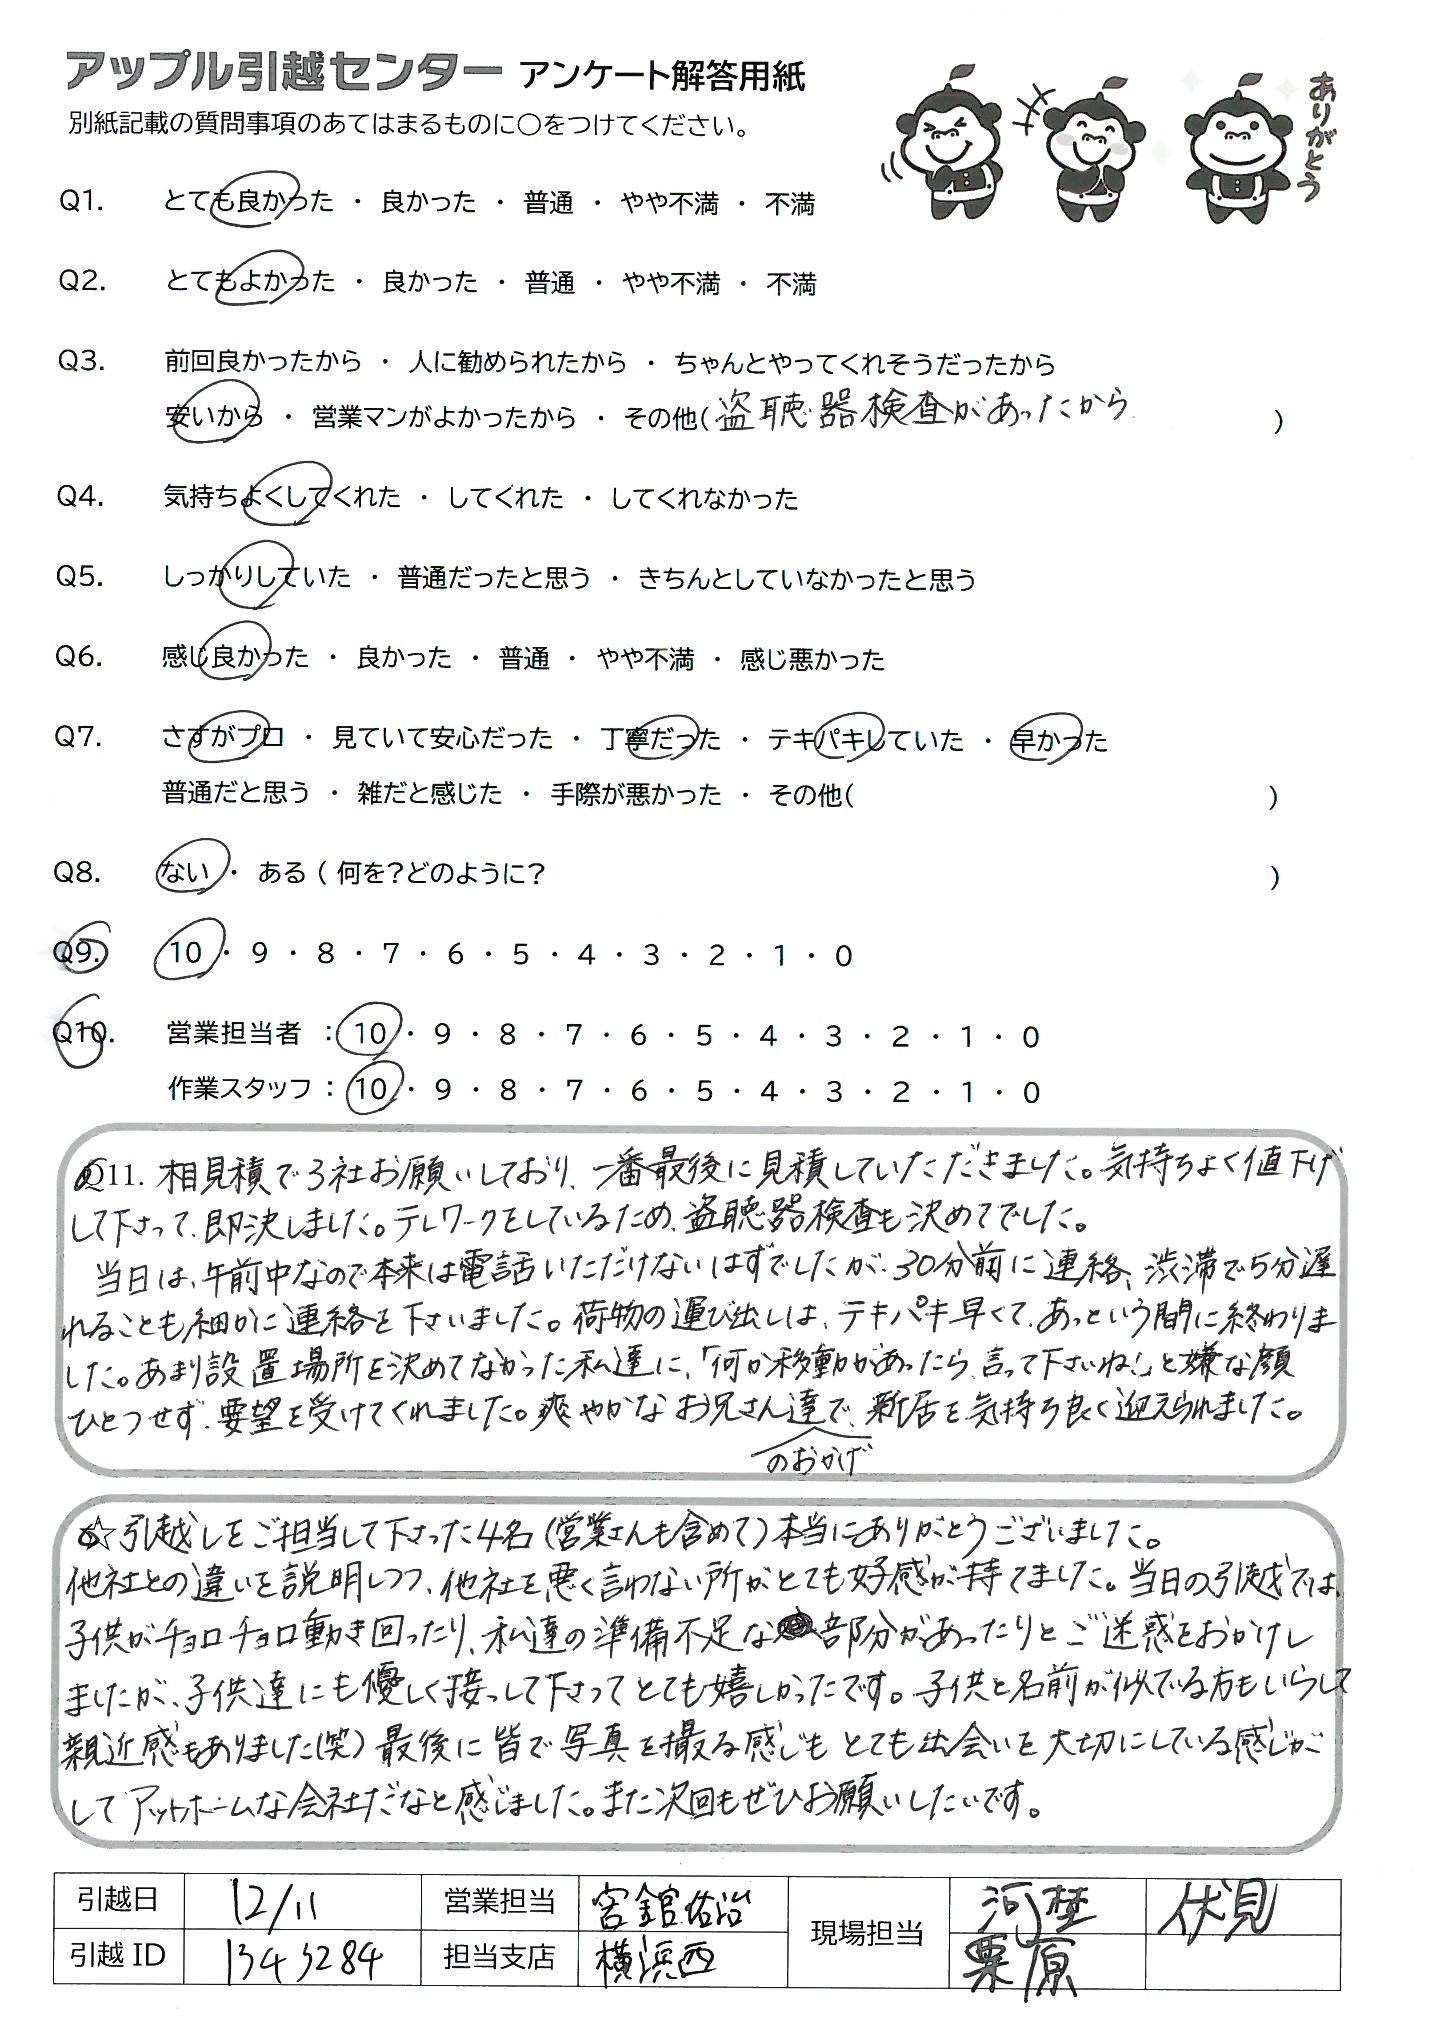 アップル引越センター アンケート解答用紙
別紙記載の質問事項のあてはまるものに○をつけてください。
ありがとう
Q1. とても良かった ・ 良かった ・ 普通 ・ やや不満 ・ 不満
Q2. とてもよかった ・ 良かった ・ 普通 ・ やや不満 ・ 不満
Q3. 前回良かったから ・ 人に勧められたから ・ ちゃんとやってくれそうだったから
安いから ・ 営業マンがよかったから ・ その他( 盗聴器検査があったから )
Q4. 気持ちよくしてくれた ・ してくれた ・ してくれなかった
Q5. しっかりしていた ・ 普通だったと思う ・ きちんとしていなかったと思う
Q6. 感じ良かった ・ 良かった ・ 普通 ・ やや不満 ・ 感じ悪かった
Q7. さすがプロ ・ 見ていて安心だった ・ 丁寧だった ・ テキパキしていた ・ 早かった
普通だと思う ・ 雑だと感じた ・ 手際が悪かった ・ その他( )
Q8. ない ・ ある ( 何を?どのように? )
Q9. 10 ・ 9 ・ 8 ・ 7 ・ 6 ・ 5 ・ 4 ・ 3 ・ 2 ・ 1 ・ 0
Q10. 営業担当者 : 10 ・ 9 ・ 8 ・ 7 ・ 6 ・ 5 ・ 4 ・ 3 ・ 2 ・ 1 ・ 0
作業スタッフ : 10 ・ 9 ・ 8 ・ 7 ・ 6 ・ 5 ・ 4 ・ 3 ・ 2 ・ 1 ・ 0
Q11. 相見積で3社お願いしており、一番最後に見積していただきました。気持ちよく値下げ
して下さって、即決しました。テレワークをしているため、盗聴器検査も決めてでした。
当日は、午前中なので本来は電話いただけないはずでしたが、30分前に連絡、渋滞で5分遅
れることも細かに連絡を下さいました。荷物の運び出しは、テキパキ早くて、あっという間に終わりま
した。あまり設置場所を決めてなかった私達に、「何か移動があったら、言って下さいね!」と嫌な顔
ひとつせず、要望を受けてくれました。爽やかなお兄さん達で、新居を気持ち良く迎えられました。
のおかげ
☆引越しをご担当して下さった4名(営業さんも含めて)本当にありがとうございました。
他社との違いを説明しつつ、他社を悪く言わない所がとても好感が持てました。当日の引越では、
子供がチョロチョロ動き回ったり、私達の準備不足な部分があったりとご迷惑をおかけし
ましたが、子供達にも優しく接っして下さってとても嬉しかったです。子供と名前が似ている方もいらして
親近感もありました(笑)最後に皆で写真を撮る感じもとても出会いを大切にしている感じが
してアットホームな会社だなと感じました。また次回もぜひお願いしたいです。
引越日 12/11 営業担当 宮舘佑治 現場担当 河埜 伏見
引越ID 1343284 担当支店 横浜西 栗原